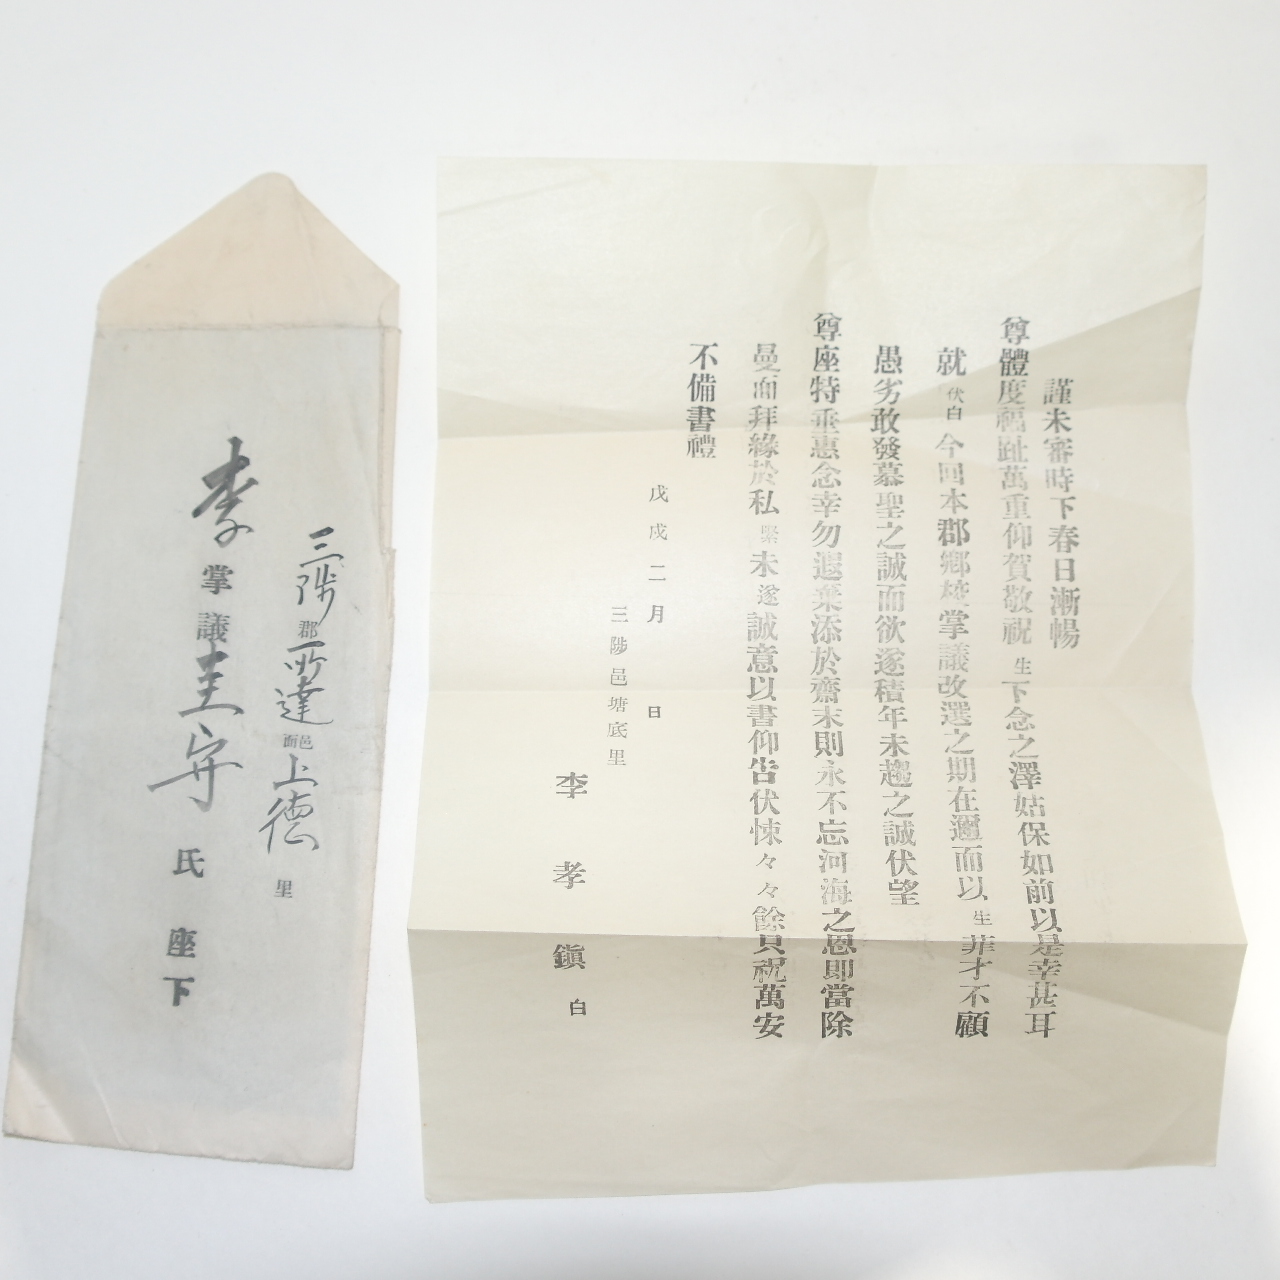 謹未審時下春日漸暢
尊體度福祉萬重仰賀敬祝生下念之澤姑保如前以是幸甚耳
就伏白今回本郡鄕校掌議改選之期在邇而以生菲才不顧
愚劣敢發慕聖之誠而欲遂積年未趨之誠伏望
尊座特垂惠念幸勿遐棄添於齋末則永不忘河海之恩卽當除
曼面拜緣於私緊未遂誠意以書仰告伏悚々々餘只祝萬安
不備書禮
戊戌二月 日
三陟邑塘底里
李孝鎭 白
三陟郡所達邑面上德里
李掌議圭守氏座下